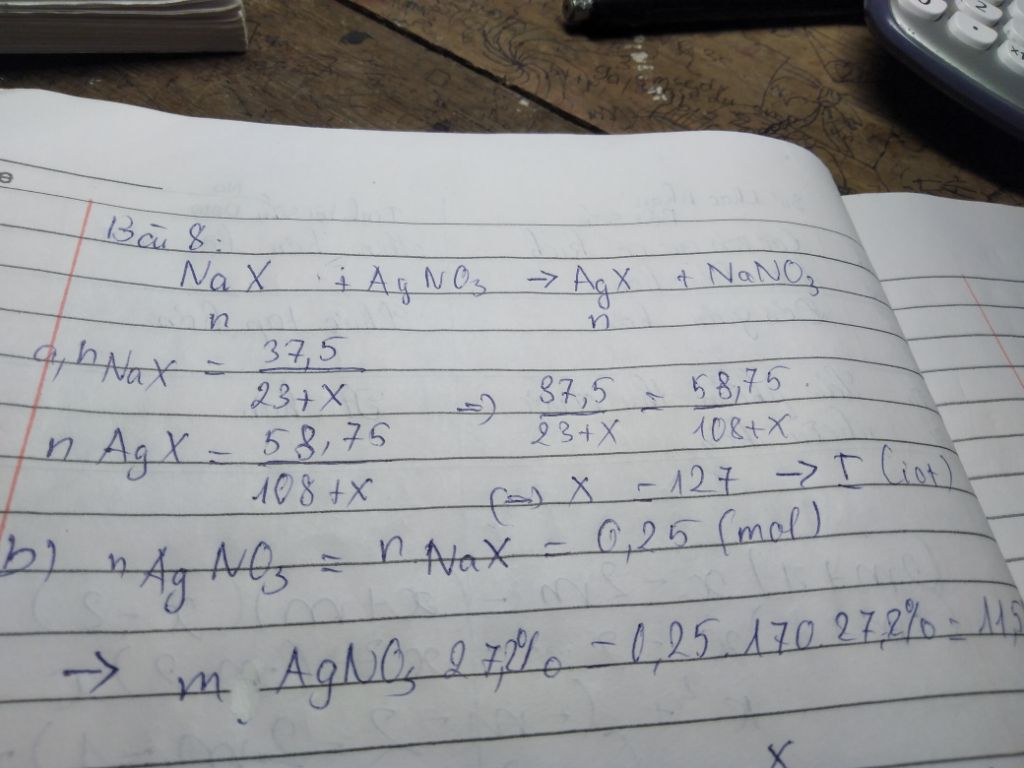 Bài 8:
NaX + AgNO3 → AgX + NaNO3
n n
a, nNaX = 37,5 / 23+X
n AgX = 58,75 / 108+X
=> 37,5 / 23+X = 58,75 / 108+X
(=>) X = 127 → I (iot)
b) nAgNO3 = nNaX = 0,25 (mol)
→ m AgNO3 27,2% = 0,25.170.27,2% = 11,5
X